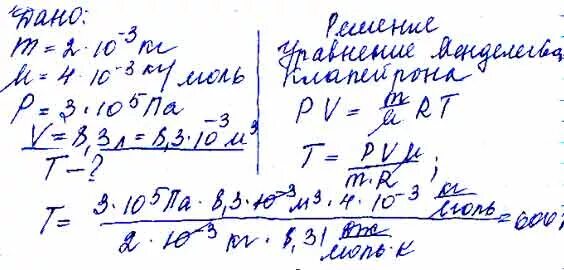 Дано:
m = 2 · 10⁻³ кг
μ = 4 · 10⁻³ кг/моль
P = 3 · 10⁵ Па
V = 8,3 л = 8,3 · 10⁻³ м³
T – ?
Решение
Уравнение Менделеева
Клапейрона
PV = m/μ RT
T = PVμ / m·R ;
T = 3·10⁵ Па · 8,3·10⁻³ м³ · 4·10⁻³ кг/моль / 2·10⁻³ кг · 8,31 Дж/моль·К = 600